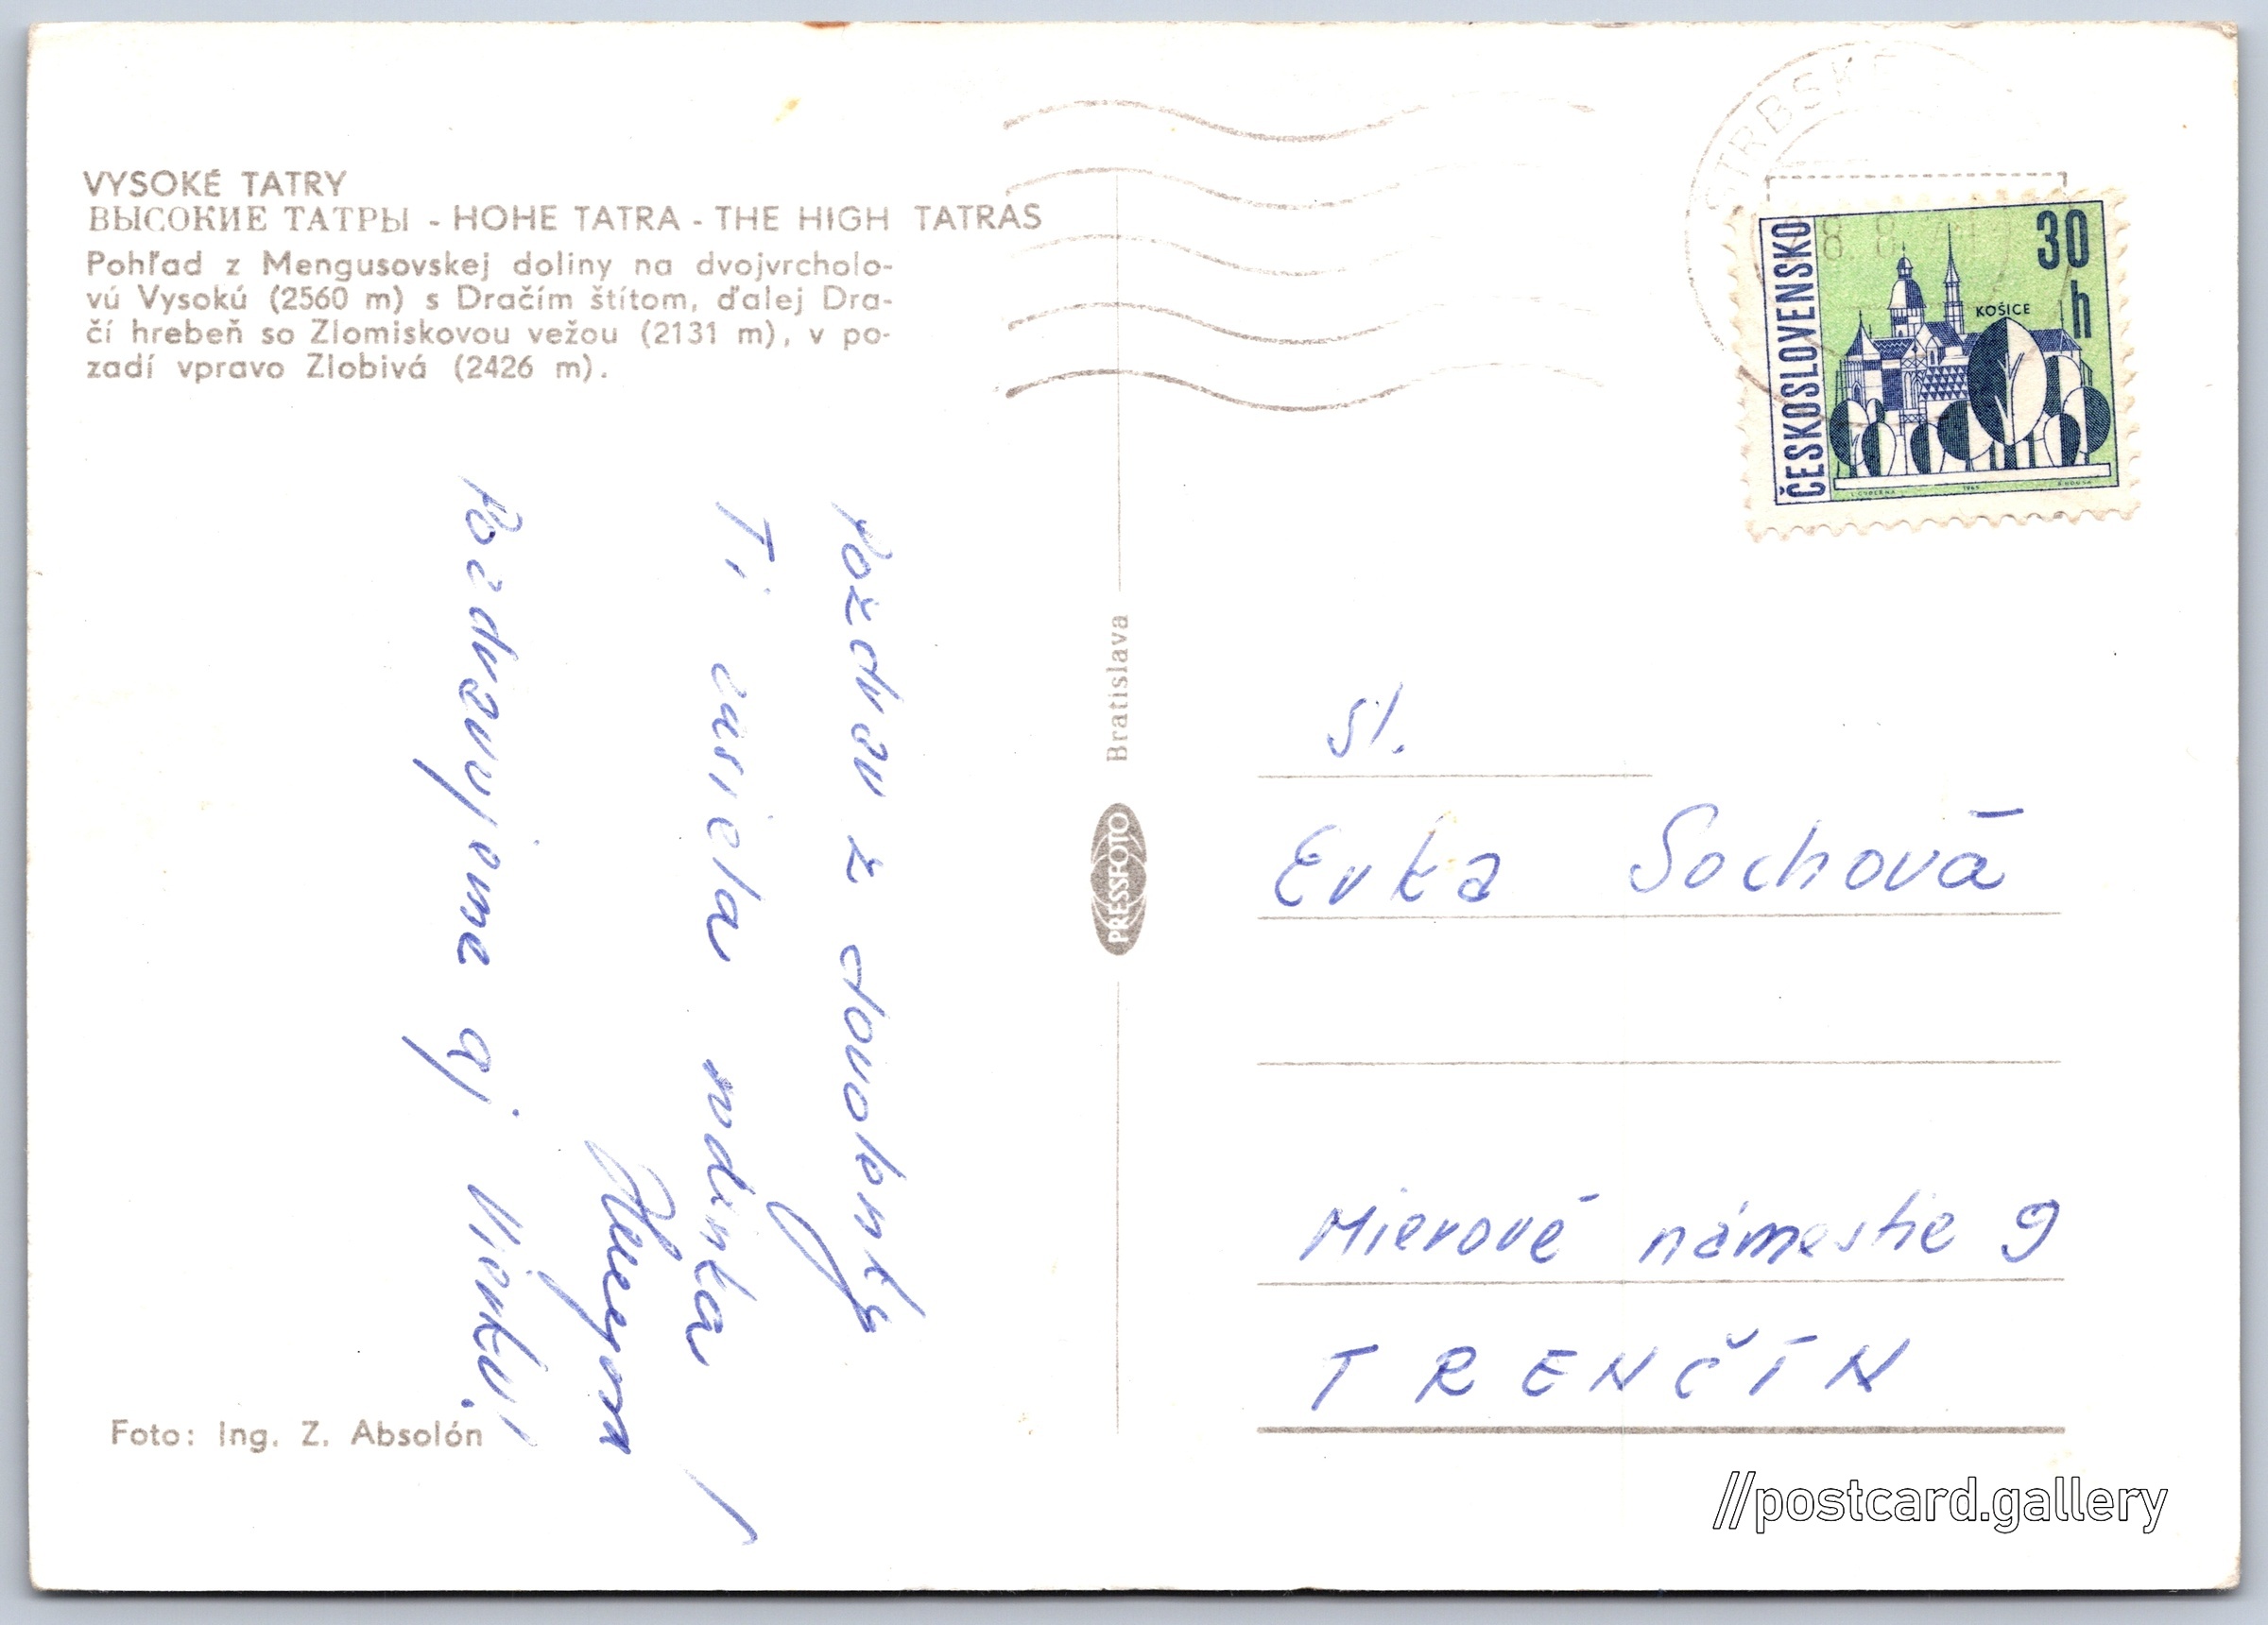 VYSOKÉ TATRY
ВЫСОКИЕ ТАТРЫ - HOHE TATRA - THE HIGH TATRAS
Pohľad z Mengusovskej doliny na dvojvrcholo-
vú Vysokú (2560 m) s Dračím štítom, ďalej Dra-
čí hrebeň so Zlomiskovou vežou (2131 m), v po-
zadí vpravo Zlobivá (2426 m).
Pozdrav z dovolenky
Ti zasiela rodinka
Pozdravujeme aj Vierku!
Foto: Ing. Z. Absolón
Bratislava
PRESSFOTO
ŠTRBSKÉ
8. 8.
ČESKOSLOVENSKO
30
h
KOŠICE
sl.
Evka Sochová
Mierové námestie 9
TRENČÍN
//postcard.gallery